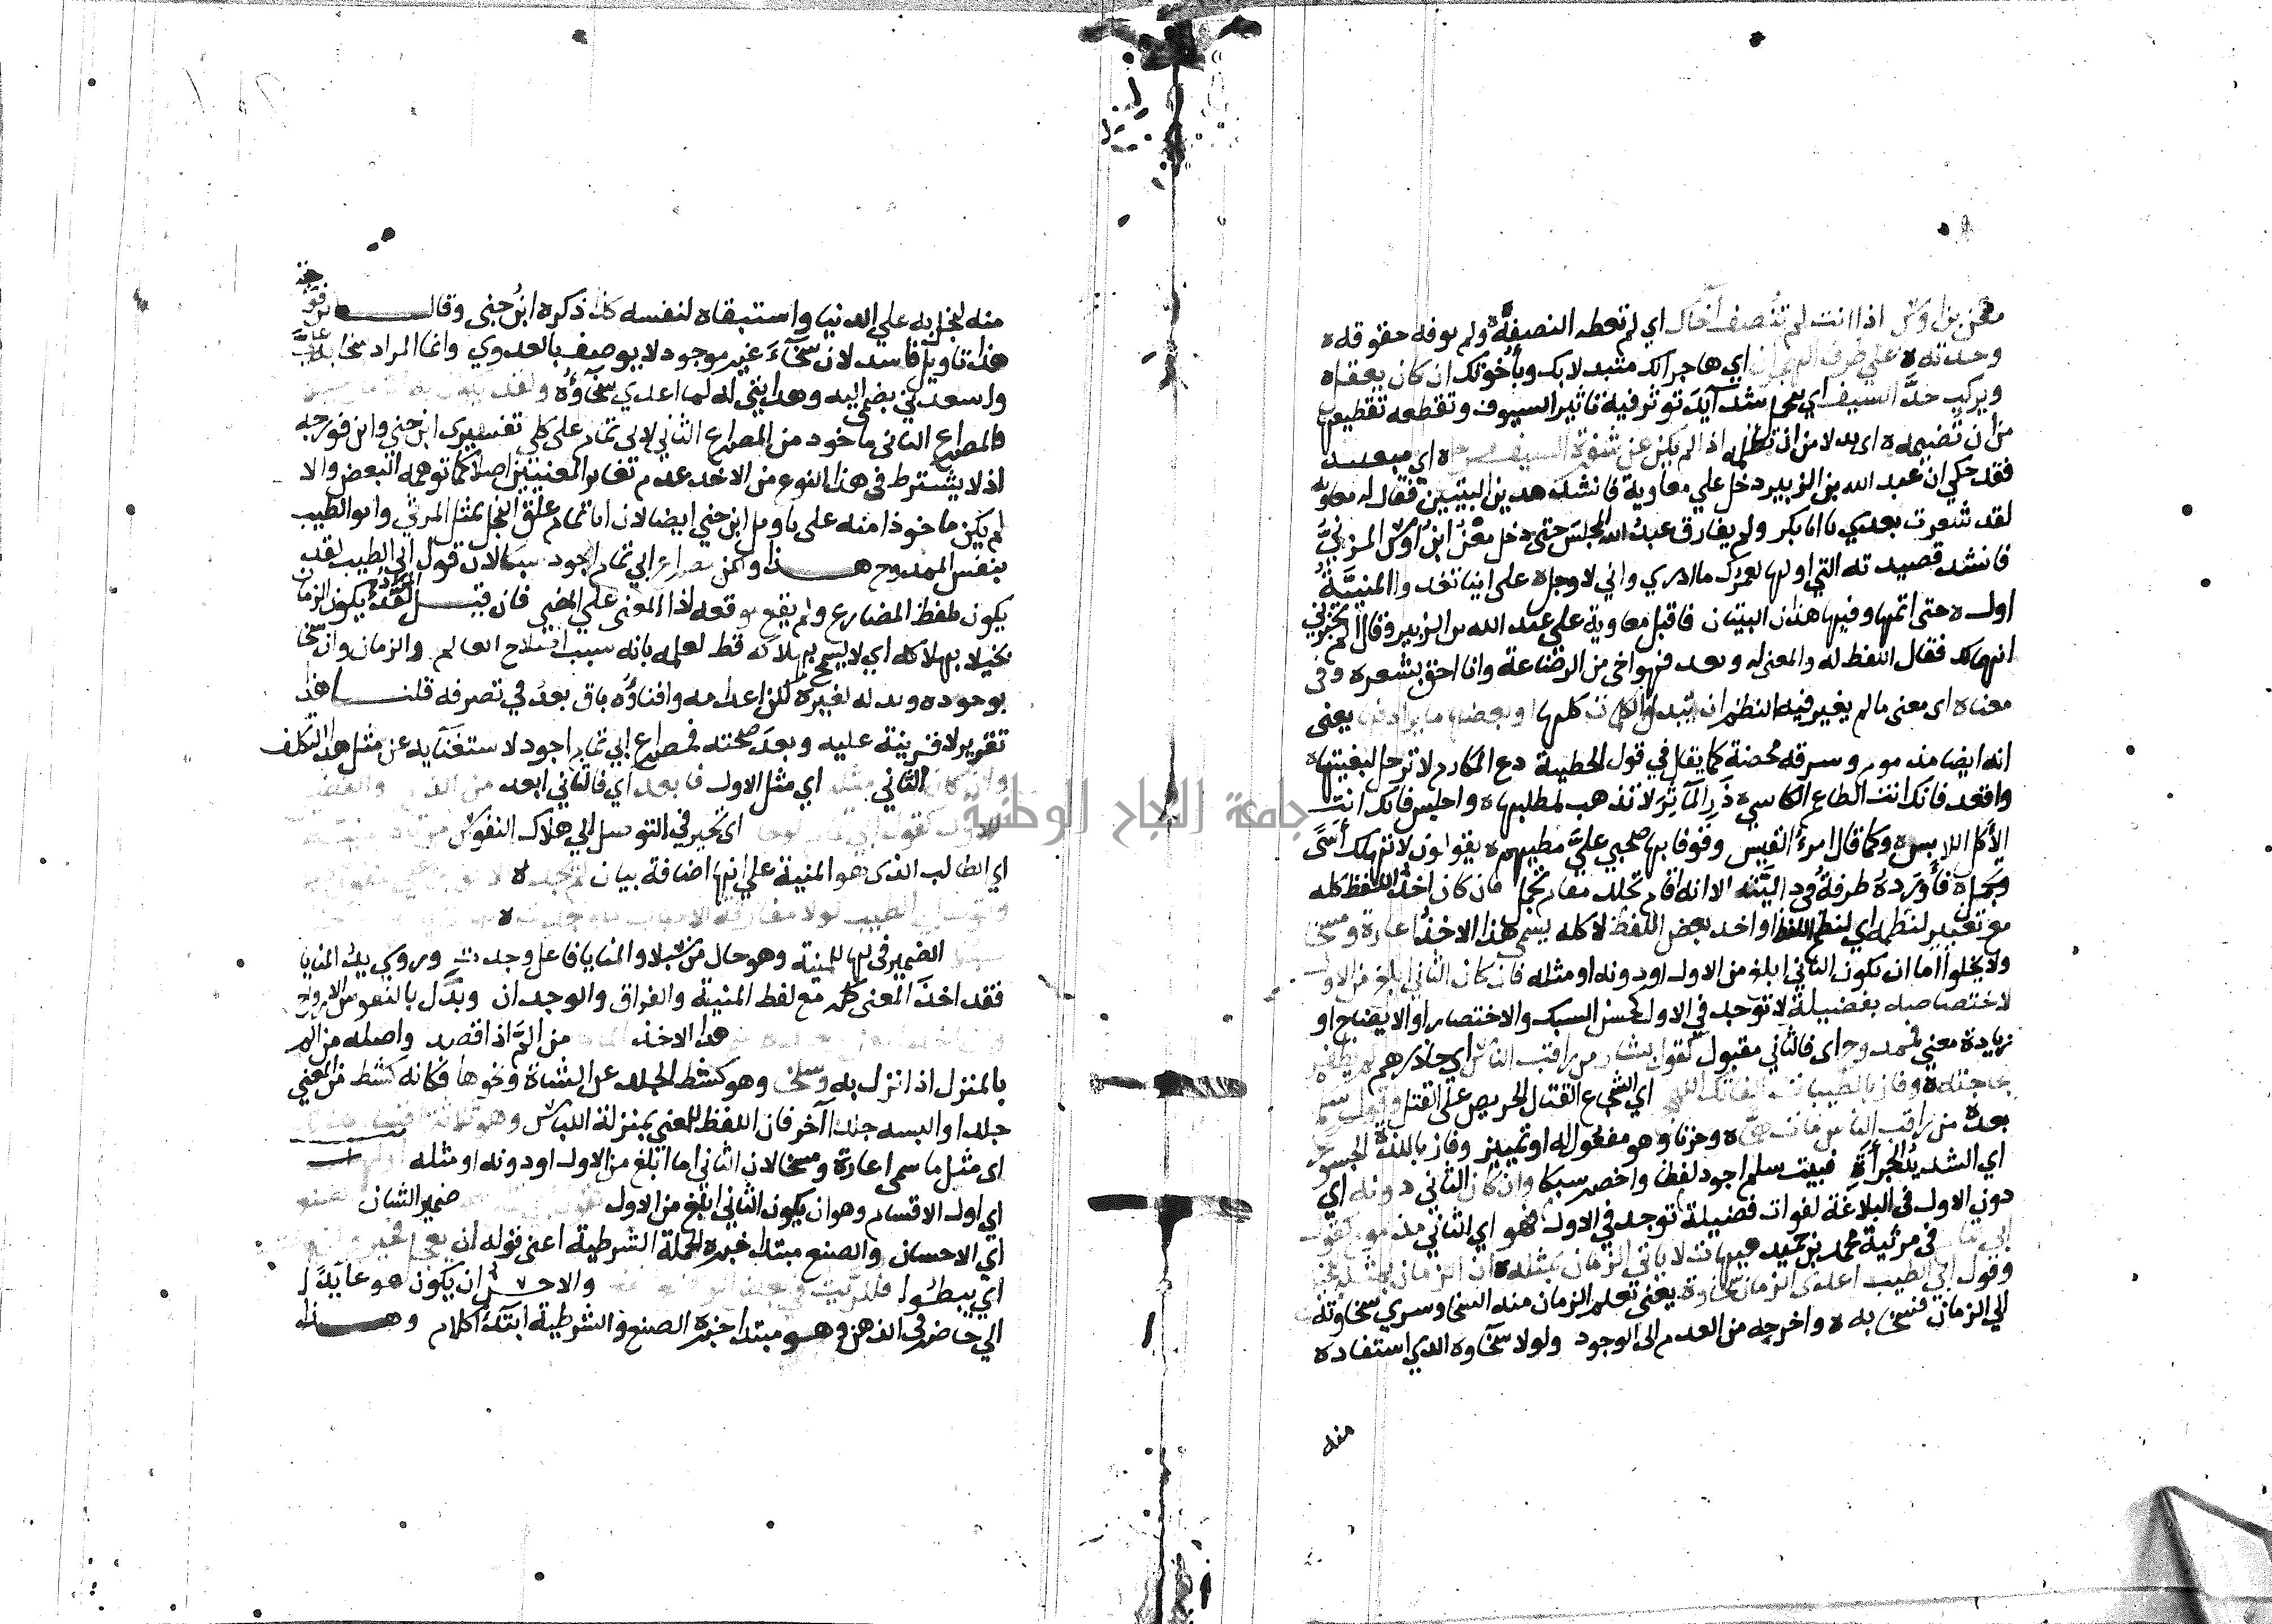 معن بن اوس اذا انت لم تنصف اخاك اي لم تعطه النصفة ولم توفه حقوقه
وجدته على طرف الهجران اي هاجرا لك متبدلا بك وباخوتك ان كان يعقل
ويركب حد السيف اي يتحمل شدائد تؤثر فيه تاثير السيوف وتقطعه تقطيعها
من ان تضيمه اي بدلا من ان تظلمه اذا لم يكن عن شفرة السيف مزحل اي مبعد
فقد حكي ان عبد الله بن الزبير دخل علي معاوية فانشده هذين البيتين فقال له معاوية
لقد شعرت بعدي يا ابا بكر ولم يفارق عبد الله المجلس حتى دخل معن ابن اوس المزني
فانشد قصيدته التي اولها لعمرك ما ادري واني لاوجل على اينا تغدو المنية
اول حتى اتمها وفيها هذان البيتان فاقبل معاوية علي عبد الله بن الزبير وقال الم تخبرني
انهما لك فقال اللفظ له والمعنى لي وبعد فهو اخي من الرضاعة وانا احق بشعره وفي
معناه اي معنى ما لم يغير فيه النظم ان تبدل الكلمات كلها او بعضها ما يرادفها يعني
انه ايضا مذموم وسرقة محضة كما يقال في قول الحطيئة دع المكارم لا ترحل لبغيتها
واقعد فانك انت الطاعم الكاسي ذر المآثر لا تذهب لمطلبها واجلس فانك انت
الآكل اللابس وكما قال امرؤ القيس وقوفا بها صحبي علي مطيهم يقولون لا تهلك أسى
وتجمل فأورده طرفة في داليته الا انه اقام تجلد مقام تجمل فان كان اخذ اللفظ كله
مع تغيير لنظمه اي لنظم اللفظ او اخذ بعض اللفظ لا كله يسمى هذا الاخذ اعارة ومسخا
ولا يخلوا اما ان يكون الثاني ابلغ من الاول او دونه او مثله فان كان الثاني ابلغ من الاول
لاختصاصه بفضيلة لا توجد في الاول كحسن السبك والاختصار او الايضاح او
زيادة معني فممدوح اي فالثاني مقبول كقول بشار من راقب الناس اي حاذرهم لم يظفر
بحاجته وفاز بالطيبات الفاتك اللهج اي الشجاع القتال الحريص على القتل وقول سلم
بعده من راقب الناس مات هما وحزنا وهو مفعول له او تمييز وفاز باللذة الجسور
اي الشديد الجرأة فبيت سلم اجود لفظا واخصر سبكا وان كان الثاني دونه اي
دون الاول في البلاغة لفوات فضيلة توجد في الاول فهو اي الثاني مذموم كقول
ابي تمام في مرثية محمد بن حميد هيهات لا ياتي الزمان بمثله ان الزمان بمثله لبخيل
وقول ابي الطيب اعدى الزمان سخاؤه يعني تعلم الزمان منه السخا وسرى سخاوته
الي الزمان فسخا به واخرجه من العدم الى الوجود ولولا سخاوه الذي استفاده
منه
منه لبخل به علي الدنيا واستبقاه لنفسه كذا ذكره ابن جني وقال ابن فورجة
هذا تاويل فاسد لان سخآء غير موجود لا يوصف بالعدوي وانما المراد سخا به علي
واسعدني بضمي اليه وهدايتي له لما اعدى سخاؤه ولقد يكون به الزمان
فالمصراع الثاني ماخوذ من المصراع الثاني لابي تمام على كلي تفسيري ابن جني وابن فورجه
اذ لا يشترط في هذا النوع من الاخذ عدم تغاير المعنيين اصلا كما توهمه البعض والا
لم يكن ماخوذا منه على تاويل ابن جني ايضا لان ابا تمام علق البخل بمثل المرثي وابو الطيب
بنفس الممدوح هذا ولكن مصراع ابي تمام اجود سبكا لان قول ابي الطيب لقد
يكون بلفظ المضارع ولم يقع موقعه اذ المعنى علي المضي فان قيل المراد لقد يكون الزمان
بخيلا بهلاكه اي لا يسمح بهلاكه قط لعلمه بانه سبب اصلاح العالم والزمان وان سخا
بوجوده وبذله لغيره لكن اعدامه وافناؤه باق بعد في تصرفه قلنا هذا
تقدير لا قرينة عليه وبعد صحته فمصراع ابي تمام اجود لاستغنايه عن مثل هذا التكلف
وان كان الثاني مثله اي مثل الاول فابعد اي فالثاني ابعد من الذم والفضل
للاول كقول ابي تمام اي تحير في التوسل الي هلاك النفوس
اي الطالب الذي هو المنية علي انها اضافة بيان لم يجد
وقول ابي الطيب لولا مفارقة الاحباب ما وجدت
الضمير في لها للمنية وهو حال من سبلا والمنايا فاعل وجدت وروي يد المنايا
فقد اخذ المعنى كله مع لفظ المنية والفراق والوجدان وبدل بالنفوس الارواح
هذا الاخذ من الم اذا قصد واصله من الم
بالمنزل اذا نزل به وسلخا وهو كشط الجلد عن الشاة ونحوها فكانه كشط من المعني
جلدا والبسه جلدا آخر فان اللفظ للمعني بمنزلة اللباس وهو ثلاثة اقسام
اي مثل ما سمي اعارة ومسخا لان الثاني اما ابلغ من الاول او دونه او مثله
اي اول الاقسام وهو ان يكون الثاني ابلغ من الاول ضمير الشان
اي الاحسان والصنع مبتدا خبره الجملة الشرطية اعني قوله ان يعجل فخير
اي يبطئوا فللريث في بعض والاحسن ان يكون هو عايدا
الي حاضر في الذهن وهو مبتدا خبره الصنع والشرطية ابتداء كلام وهذا
جامعة النجاح الوطنية